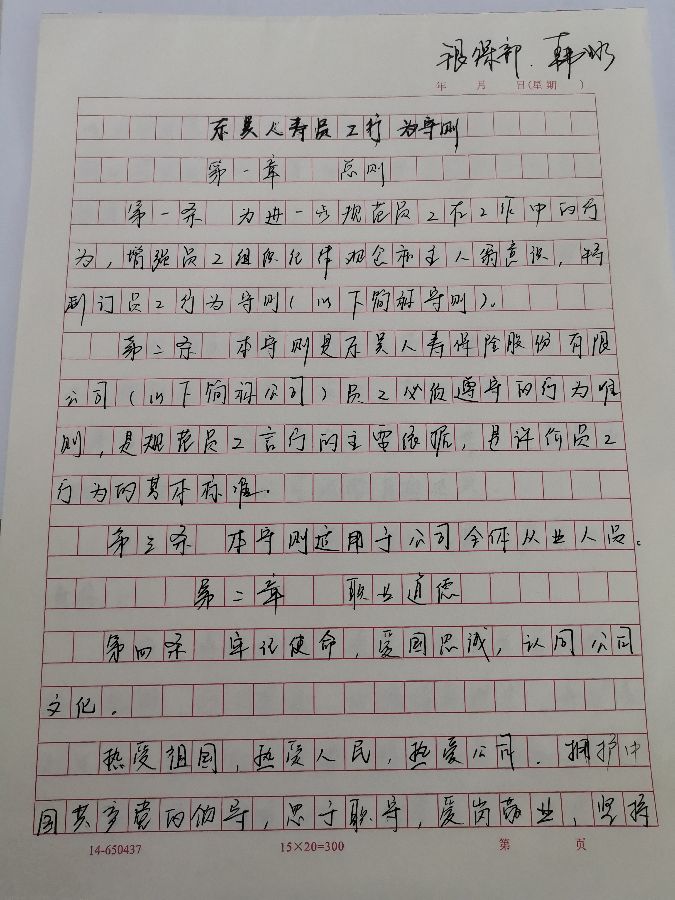 银保部 韩冰
年 月 日(星期 )
东吴人寿员工行为守则
第一章 总则
第一条 为进一步规范员工在工作中的行
为,增强员工组织纪律观念和主人翁意识,特
制订员工行为守则(以下简称守则)。
第二条 本守则是东吴人寿保险股份有限
公司(以下简称公司)员工必须遵守的行为准
则,是规范员工言行的主要依据,是评价员工
行为的基本标准。
第三条 本守则适用于公司全体从业人员。
第二章 职业道德
第四条 牢记使命,爱国忠诚,认同公司
文化。
热爱祖国,热爱人民,热爱公司.拥护中
国共产党的领导,忠于职守,爱岗敬业,坚持
14-650437 15×20=300 第 页